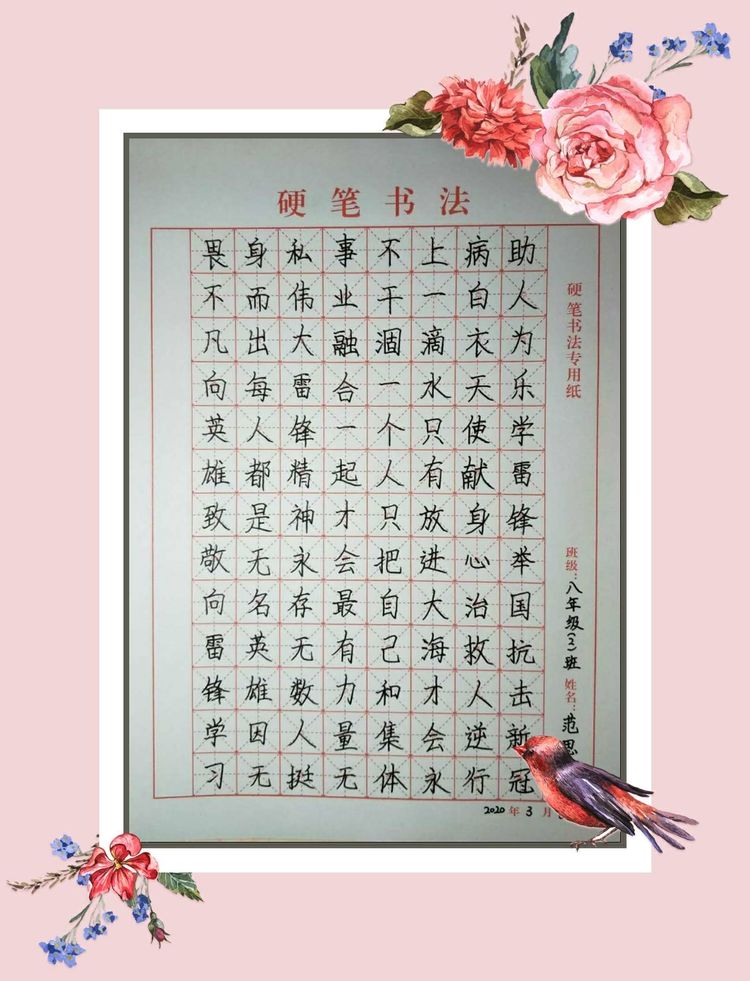 硬笔书法
硬笔书法专用纸
班级：八年级(3)班 姓名：范思
助人为乐学雷锋举国抗击新冠
病白衣天使献身心治救人逆行
上一滴水只有放进大海才会永
不干涸一个人只把自己和集体
事业融合一起才会最有力量无
私伟大雷锋精神永存无数人挺
身而出每人都是无名英雄因无
畏不凡向英雄致敬向雷锋学习
2020年3月